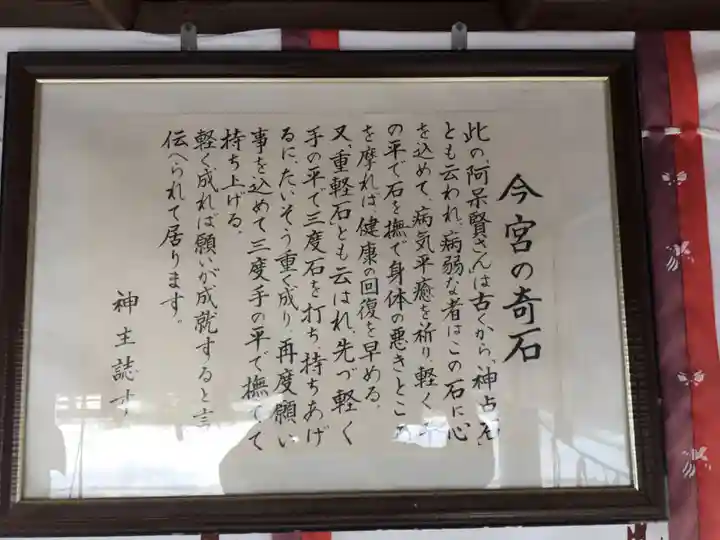 今宮の奇石
此の「阿呆賢さん」は古くから、「神占石」
とも云われ、病弱な者はこの石に心
を込めて、病気平癒を祈り、軽く手
の平で石を撫で身体の悪きところ
を摩れば健康の回復を早める。
又「重軽石」とも云はれ、先づ軽く
手の平で三度石を打ち持ちあげ
るに、たいそう重く成り、再度願い
事を込めて三度手の平で撫でて
持ち上げる。
軽く成れば願いが成就すると言
伝へられて居ります。
神主誌す